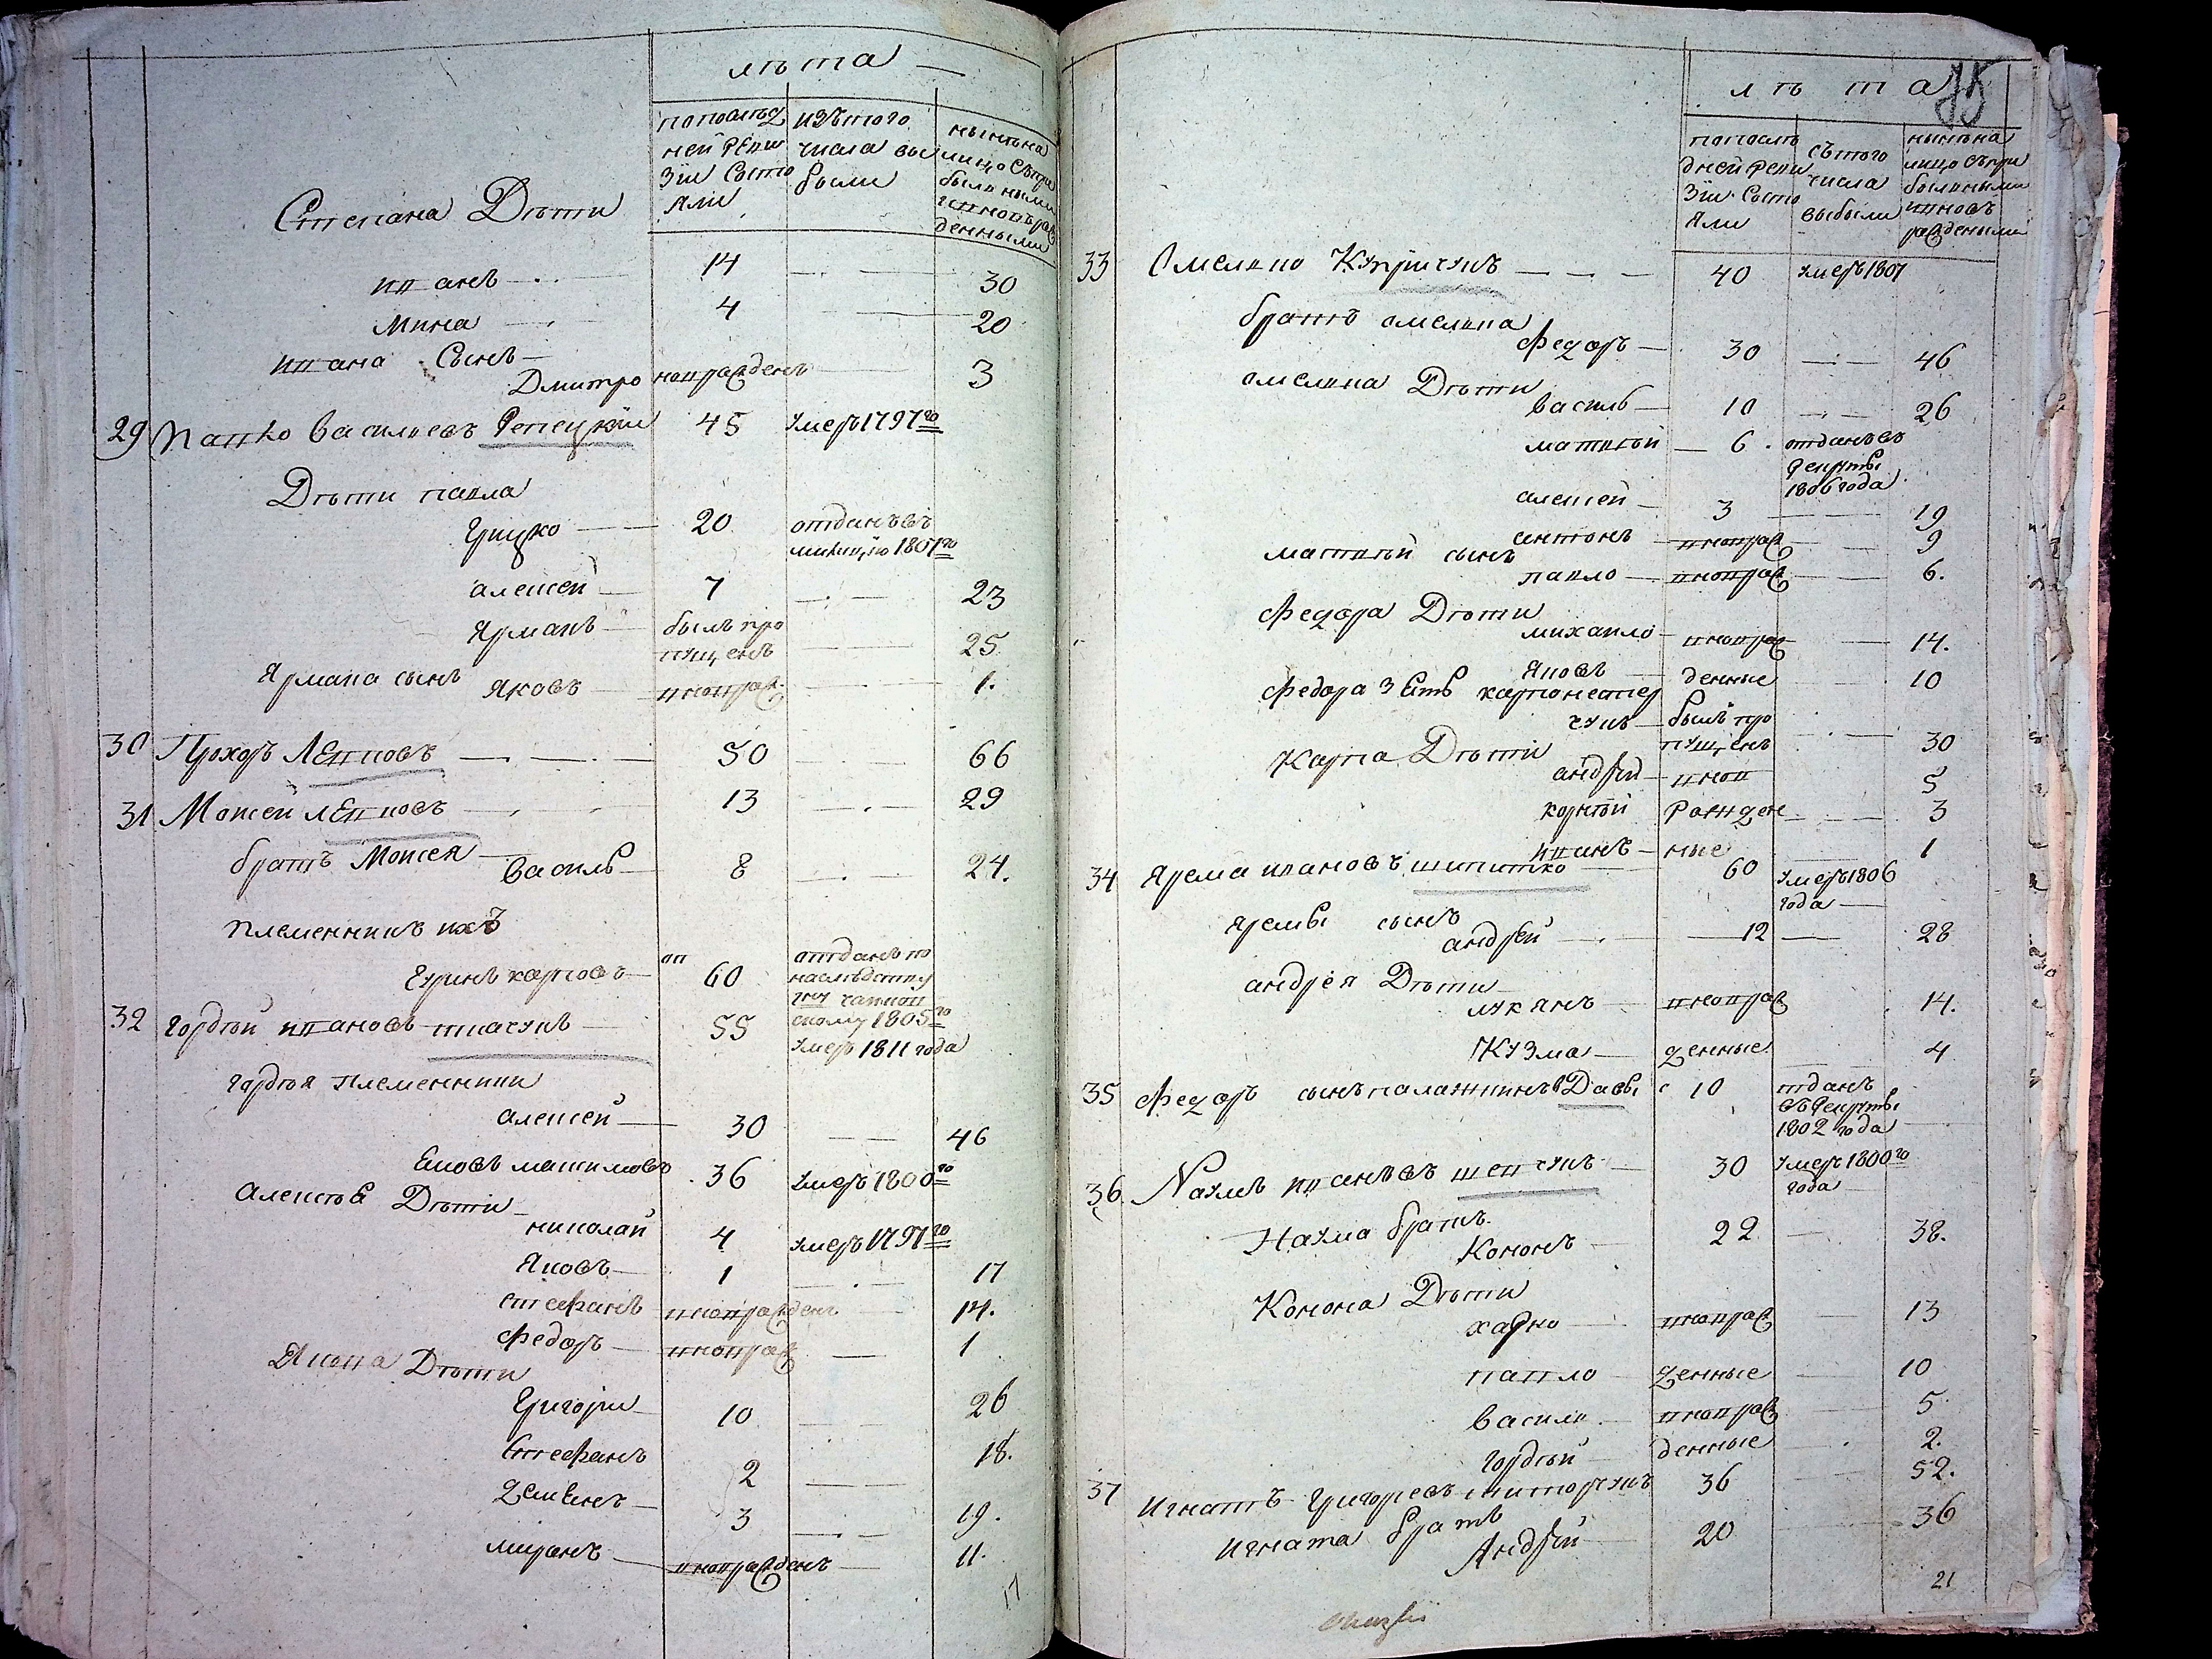 лѣта
попослѣд ней Ревизіи Состояли
изътого числа выбыли
нынѣна лицо Съприбылыми ивновьражденными
Степана Дѣти
иванъ 14 30
Мина 4 20
ивана Сынъ
Дмитро новражденъ 3
29 Павло Василіевъ Репецкій 45 Умеръ 1797го
Дѣти павла
Грицко 20 отданъвъ милицію 1807го
алексей 7 23
Ярмакъ былъ пропущенъ 25
Ярмака сынъ Яковъ вновраж. 1.
30 Прохоръ ЛЕвковъ 50 66
31 Моисей лЕвковъ 13 29
братъ Моисея Василь 8 24.
племенникъ ихъ
карповъ 60 отданъ по наслѣдству 1805го
32 Гордѣй ивановъ ткачукъ 55 Умеръ 1811 года
гордѣя племенники
алексей 30 46
Яковъ максимовъ 36 Умеръ 1800го
Алексѣя Дѣти
николай 4 Умеръ 1797го
Яковъ 1 17
стефанъ вновражденъ 14.
Федоръ вновраж 1
Якова Дѣти
Григори 10 26
Стефанъ 2 18.
Семенъ 3 19.
миронъ вновражденъ 11.
17
лѣта
75
попослѣдней Ревизіи Состояли
сътого числа выбыли
нынѣна лицо Съприбылыми ивновьраждеными
33 Омеляно Купріичукъ 40 умеръ 1807
братъ омеляна
Федоръ 30 46
омеляна Дѣти
василь 10 26
матвѣй 6 отданъвъ рекруты 1806 года
алексей 3 19
антонъ вновраж 9
матвѣй сынъ
павло вновраж 6.
Федора Дѣти
михаило вновраж 14.
Яковъ денные 10
Федора зять карпо
былъ пропущенъ 30
Карпа Дѣти
андрѣй внов 5
корнѣй Рожден 3
иванъ ные 1
34 Ярема ивановъ шипитко 60 Умеръ 1806 года
яремы сынъ
андрей 12 28
андрея Дѣти
лукянъ вновраж 14.
Кузма денные 4
35 Федоръ сынъ 10 отданъ въРекруты 1802 года
36. Наумъ ивановъ шевчукъ 30 Умеръ 1800го года
Наума братъ
Кононъ 22 38.
Конона Дѣти
харко вновраж 13
павло денные 10
василь вновраж 5
гордѣй денные 2.
37 Игнатъ григоревъ 36 52.
Игната братъ
Андрѣй 20 36
21